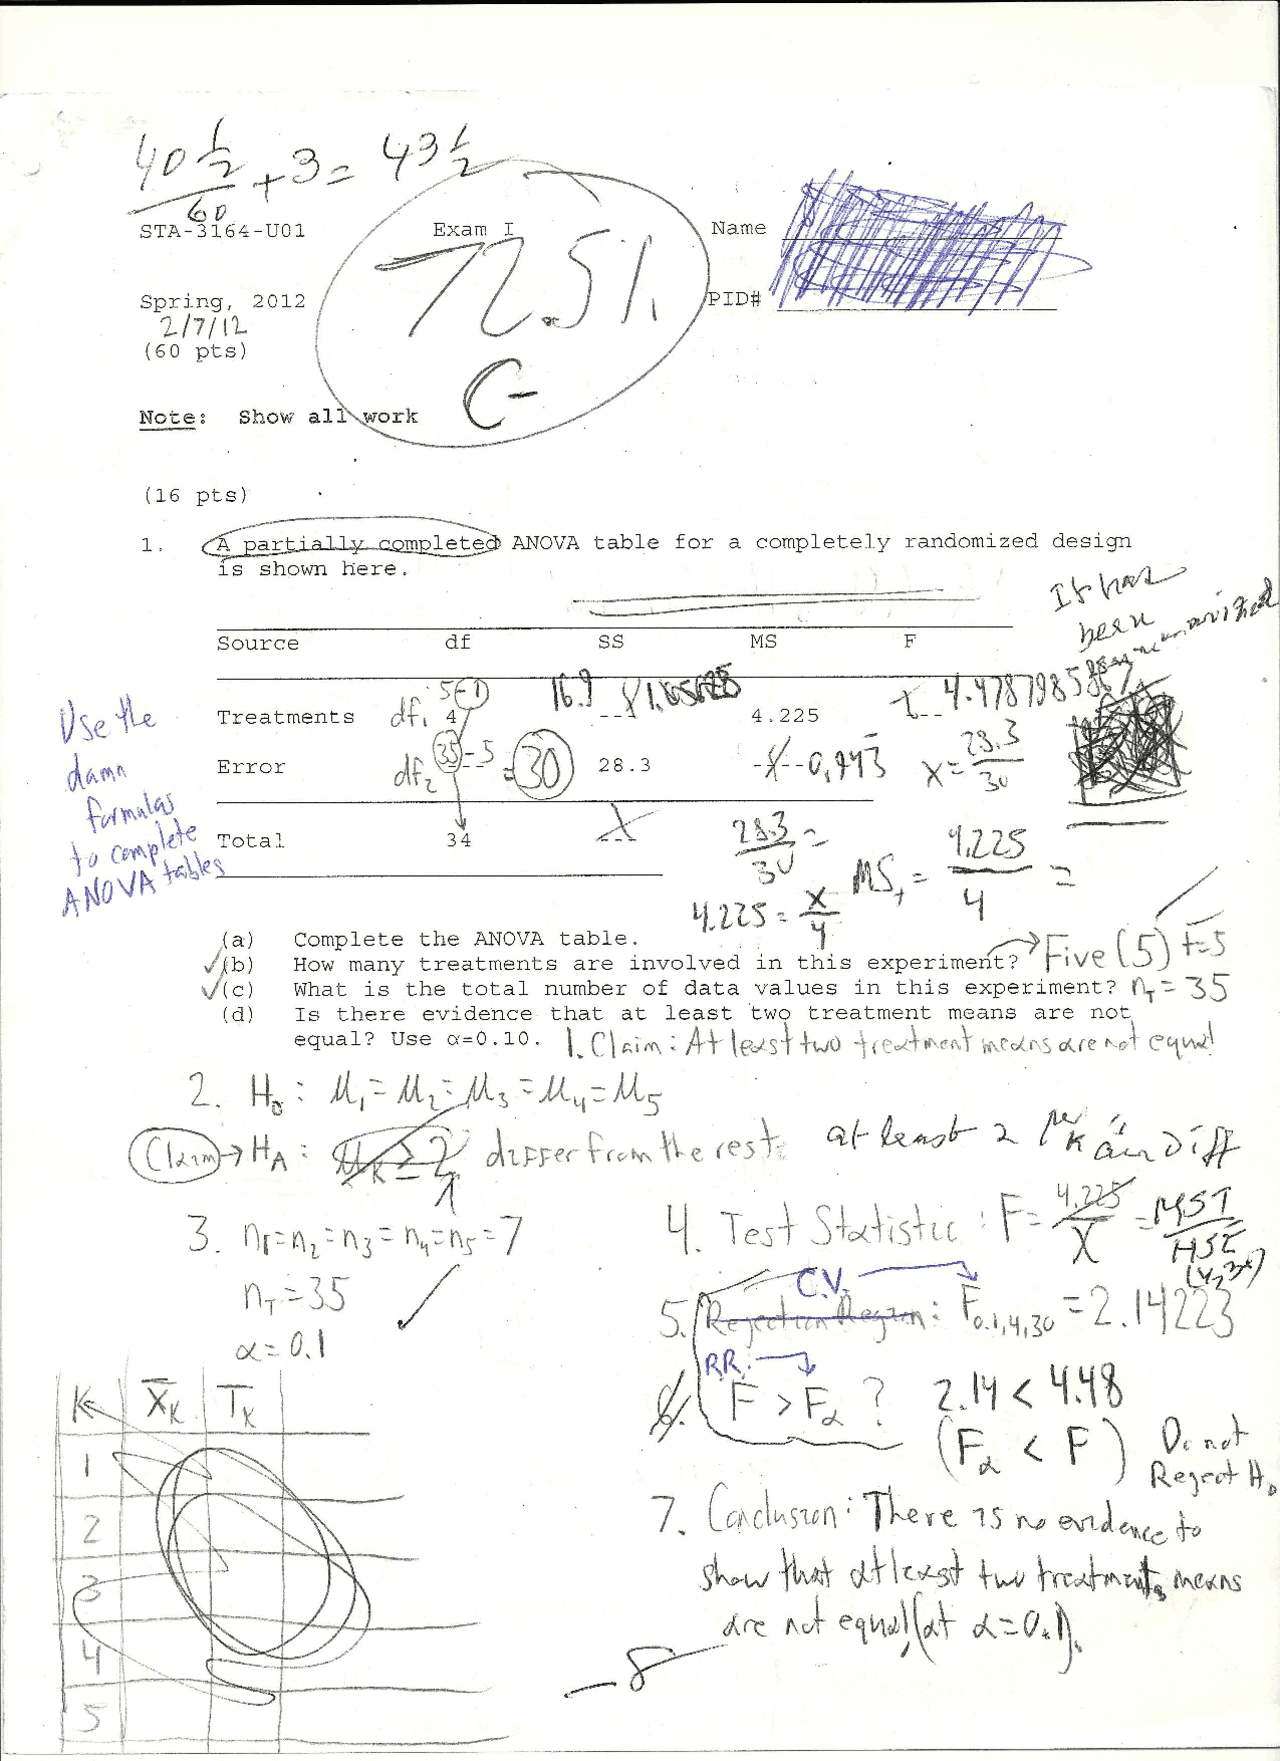 40 1/2 / 60 + 3 = 43 1/2
STA-3164-U01 Exam I Name
72.5%
C-
Spring, 2012 PID#
2/7/12
(60 pts)
Note: Show all work
(16 pts)
1. A partially completed ANOVA table for a completely randomized design
is shown here.
It has
been
Source df SS MS F
5-1 16.9
Treatments df₁ 4 --- 4.225 ---
Error df₂ 35-5 = 30 28.3 -X- 0.943 X = 28.3/30
Total 34 --- 28.3/30 =
MS_T = 4.225/4 =
4.225 = X/4
Use the
damn
formulas
to complete
ANOVA tables
(a) Complete the ANOVA table.
(b) How many treatments are involved in this experiment? → Five (5) t=5
(c) What is the total number of data values in this experiment? n_T = 35
(d) Is there evidence that at least two treatment means are not
equal? Use α=0.10. 1. Claim: At least two treatment means are not equal
2. H₀: μ₁ = μ₂ = μ₃ = μ₄ = μ₅
Claim → H_A: μ_K ≥ 2 differ from the rest. at least 2 μ_K's are Diff
3. n₁=n₂=n₃=n₄=n₅=7
n_T = 35
α = 0.1
4. Test Statistic: F = 4.225/X = MST/MSE
(4,30)
C.V.
5. Rejection Region: F₀.₁,₄,₃₀ = 2.14223
R.R.
6. F > F_α ? 2.14 < 4.48
(F_α < F) Do not
Reject H₀
7. Conclusion: There is no evidence to
show that at least two treatments means
are not equal (at α=0.1).
-8
K X̄_K T_K
1
2
3
4
5